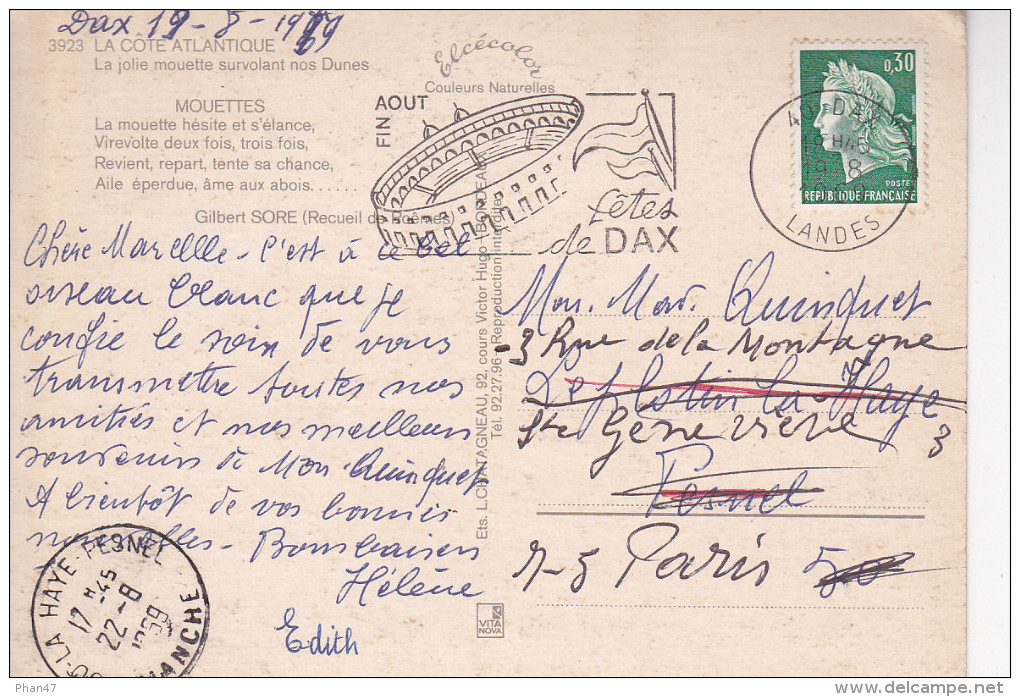 Dax 19-8-1969
3923 LA COTE ATLANTIQUE
La jolie mouette survolant nos Dunes
MOUETTES
La mouette hésite et s'élance,
Virevolte deux fois, trois fois,
Revient, repart, tente sa chance,
Aile éperdue, âme aux abois......
Gilbert SORE (Recueil de Poèmes)
Elcécolor
Couleurs Naturelles
FIN AOUT
fêtes
de DAX
40-DAX
19-8
LANDES
0,30
POSTE
REPUBLIQUE FRANÇAISE
Chère Marcelle - c'est à ce bel
oiseau blanc que je
confie le soin de vous
transmettre toutes nos
amitiés et nos meilleurs
souvenirs à Mon. Quinquet
A bientôt de vos bonnes
nouvelles - Bons baisers
Hélène
Edith
Ets. L. CHATAGNEAU, 92, cours Victor Hugo - BORDEAUX
Tél. 92.27.96 - Reproduction interdite
Mon. Mad. Quinquet
-3 Rue de la Montagne
La Haye
Ste Geneviève
3
Pesnel
Paris
50
LA HAYE-PESNEL
17 H 45
22-8
1969
MANCHE
VITA
NOVA
Phan47
delcampe.net